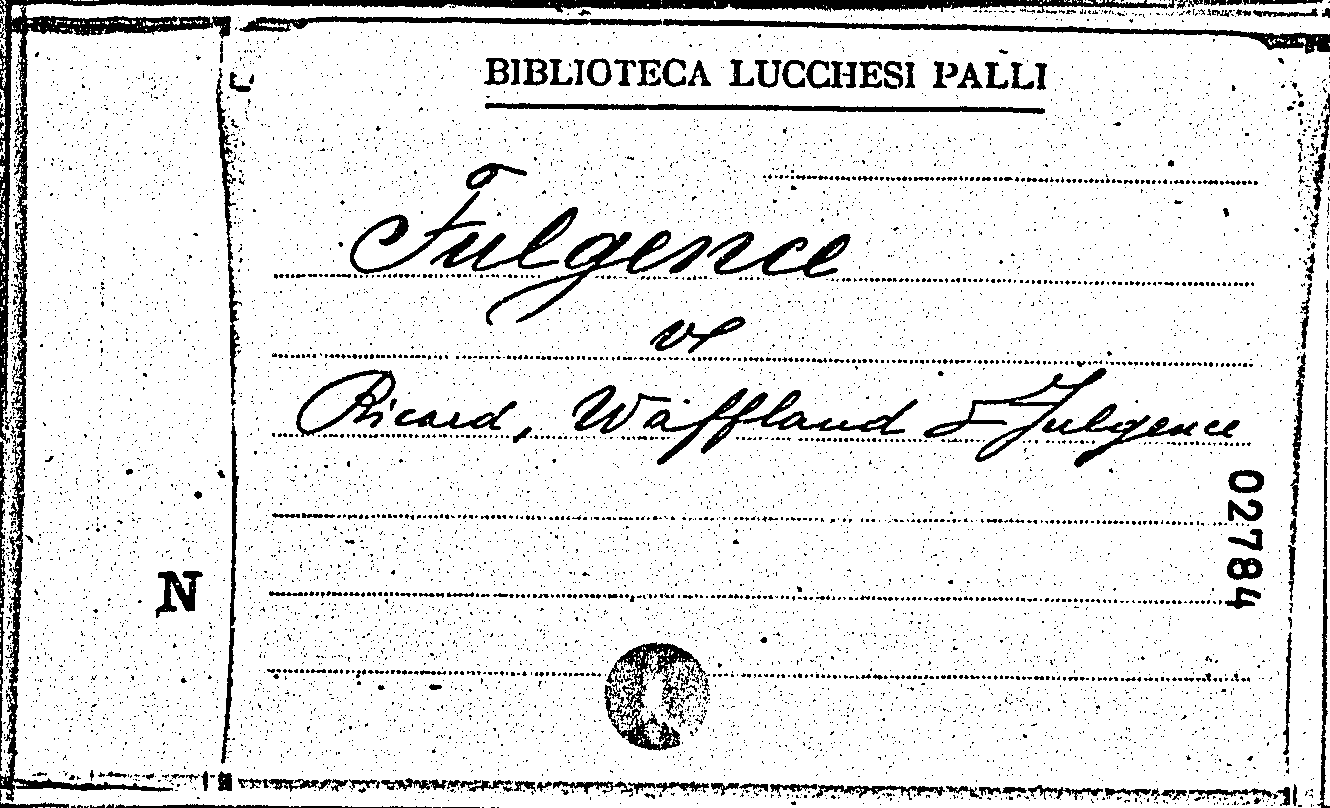 BIBLIOTECA LUCCHESI PALLI
Fulgence
v
Ricard, Wafflard & Fulgence
02784
N